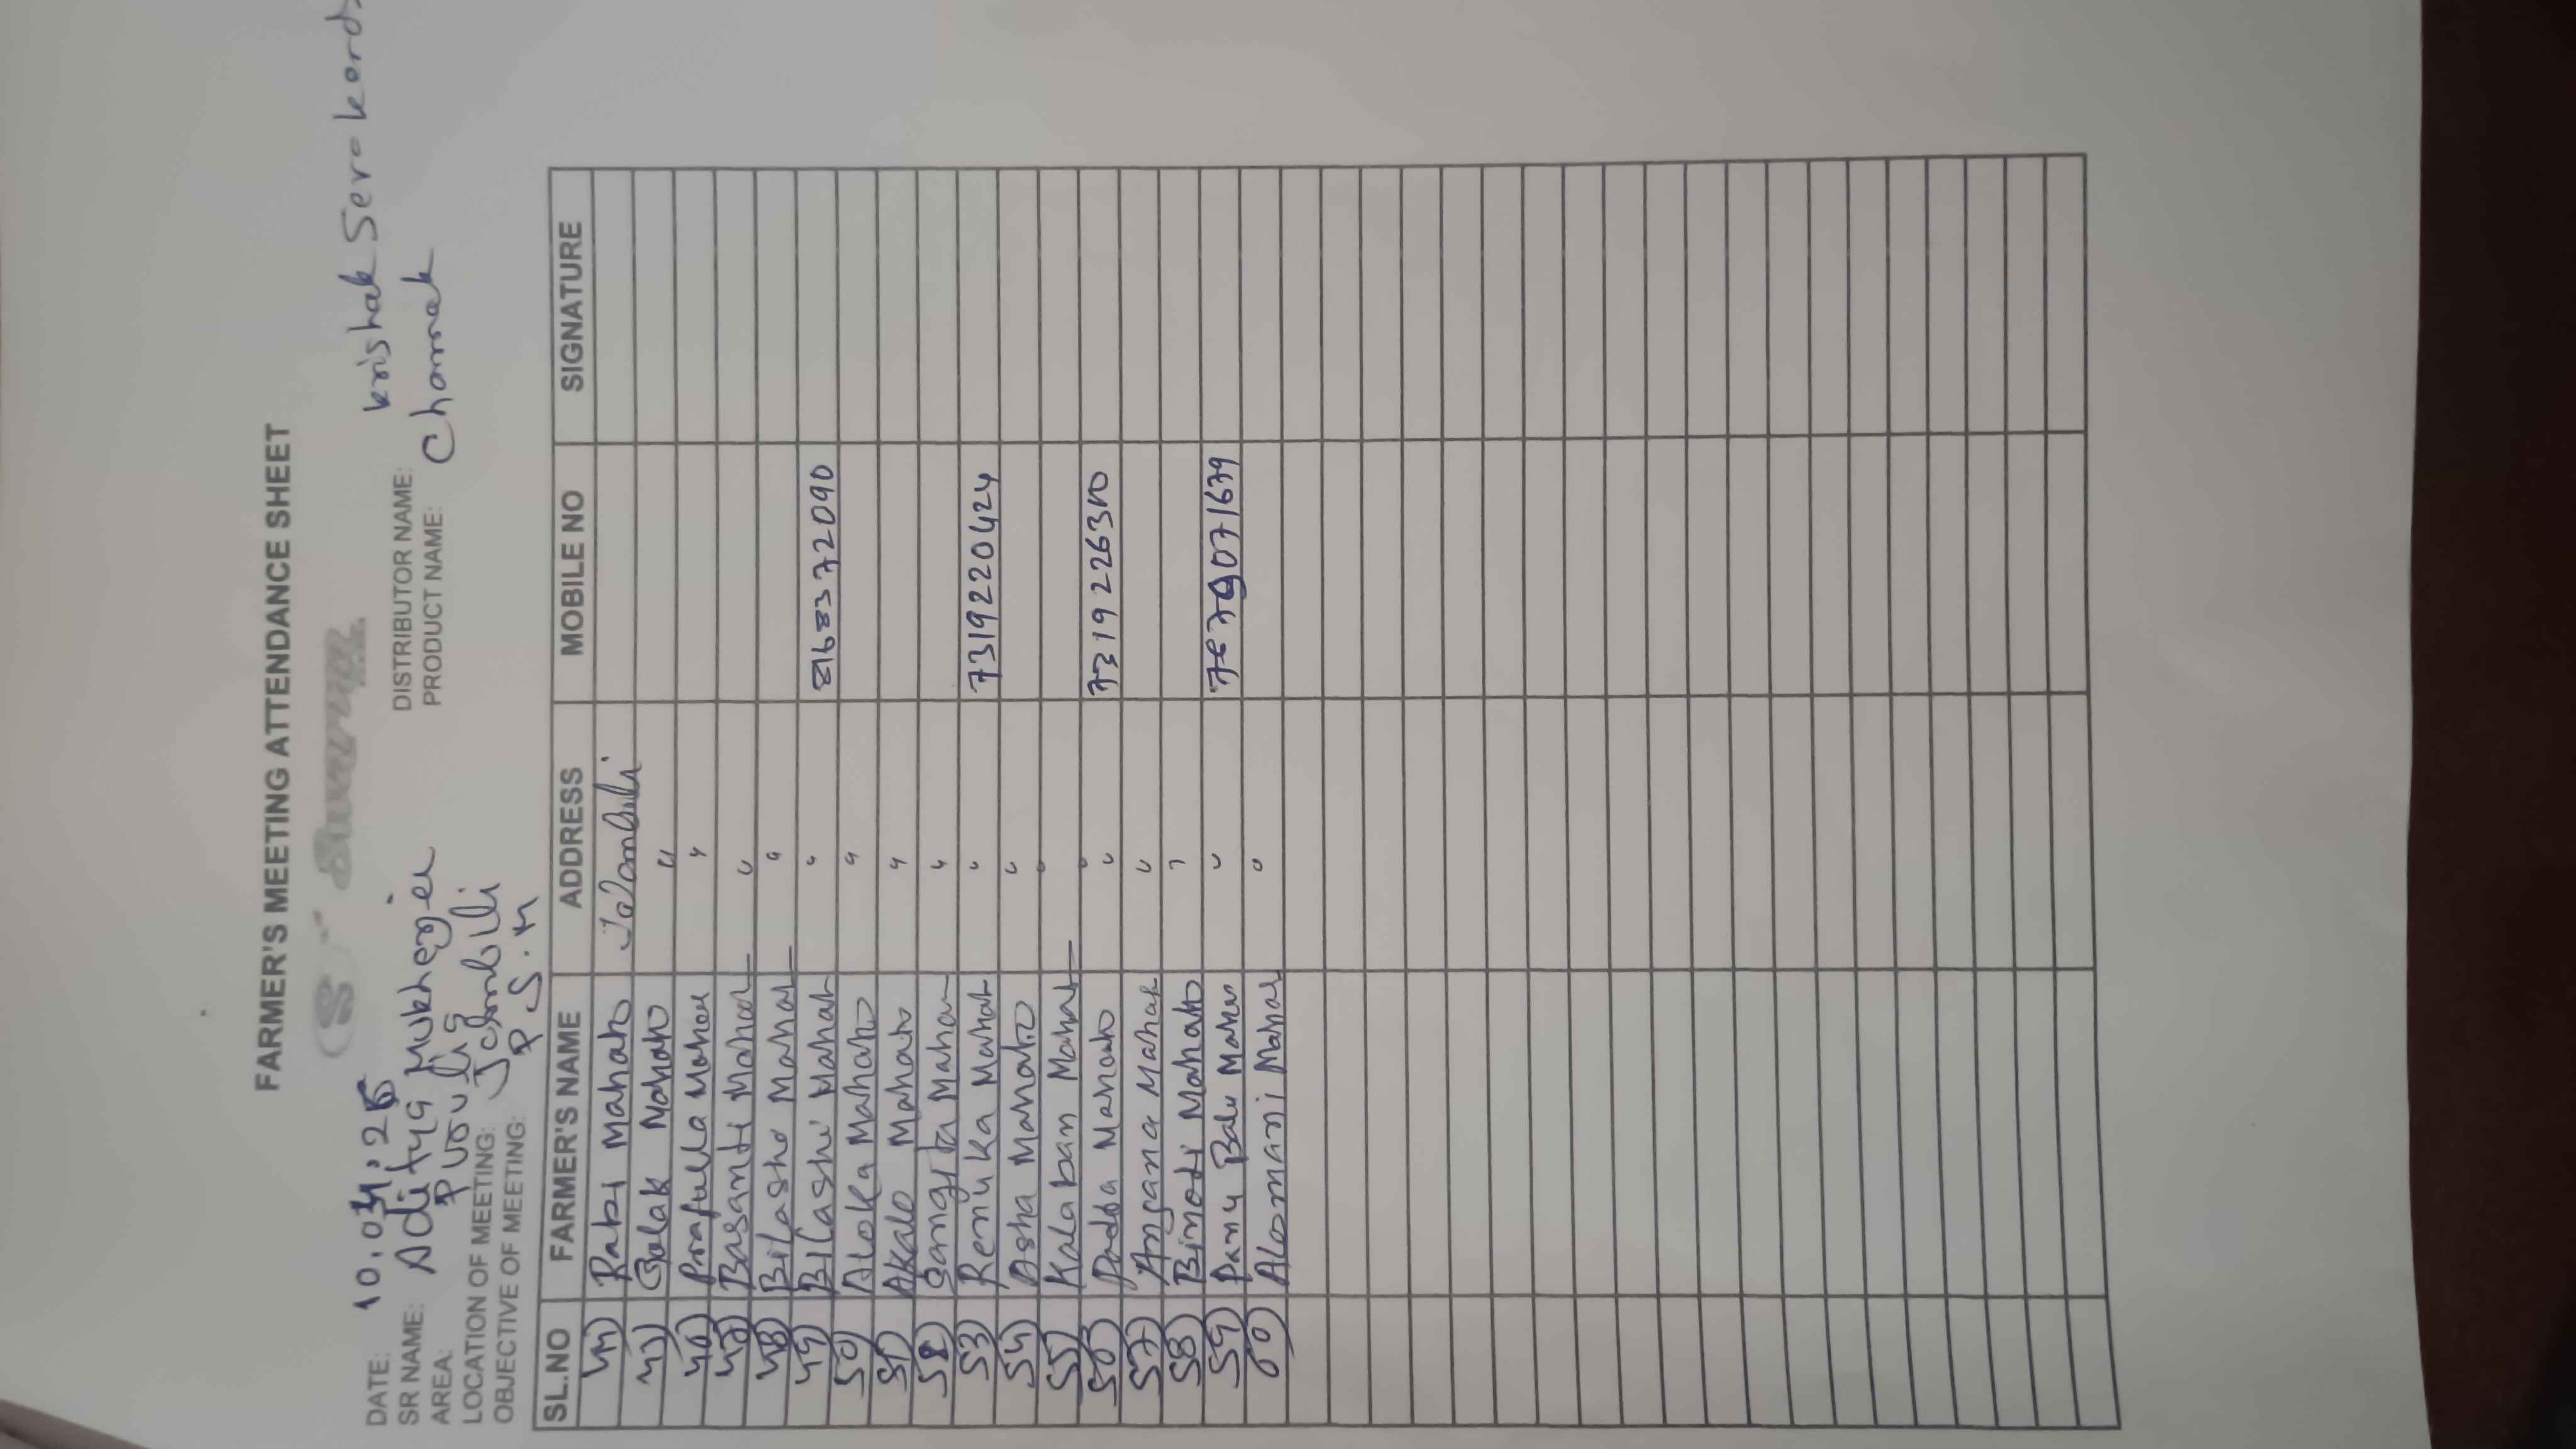 FARMER'S MEETING ATTENDANCE SHEET
DATE: 10.04.25
SR NAME: Aditya Mukherjee
AREA: Purulia
LOCATION OF MEETING: Jambuli
OBJECTIVE OF MEETING: P.S.M
DISTRIBUTOR NAME: Krishak Seva Kendr
PRODUCT NAME: Chamak
SL.NO FARMER'S NAME ADDRESS MOBILE NO SIGNATURE
44) Rabi Mahato
45) Golak Mahato "
46) Prafulla Mahato "
47) Basanti Mahato "
48) Bilasho Mahato "
49) Bilashi Mahato " 8168372090
50) Aloka Mahato "
51) Akalo Mahato "
52) Sangita Mahato "
53) Renuka Mahato " 7319220424
54) Asha Mahato "
55) Kalaban Mahato "
56) Mahato "
57) Angana Mahato "
58) Bimoti Mahato "
59) Bala Mahato "
60) Alomani Mahato "